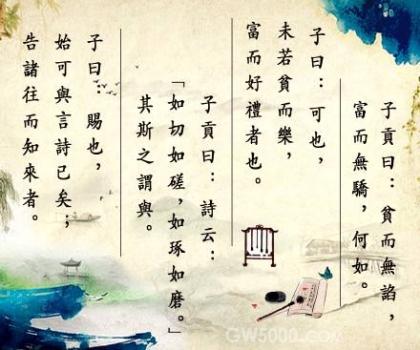 子貢曰：貧而無諂，
富而無驕，何如。
子曰：可也，
未若貧而樂，
富而好禮者也。
子貢曰：詩云：
「如切如磋，如琢如磨。」
其斯之謂與。
子曰：賜也，
始可與言詩已矣；
告諸往而知來者。
GW5000.COM